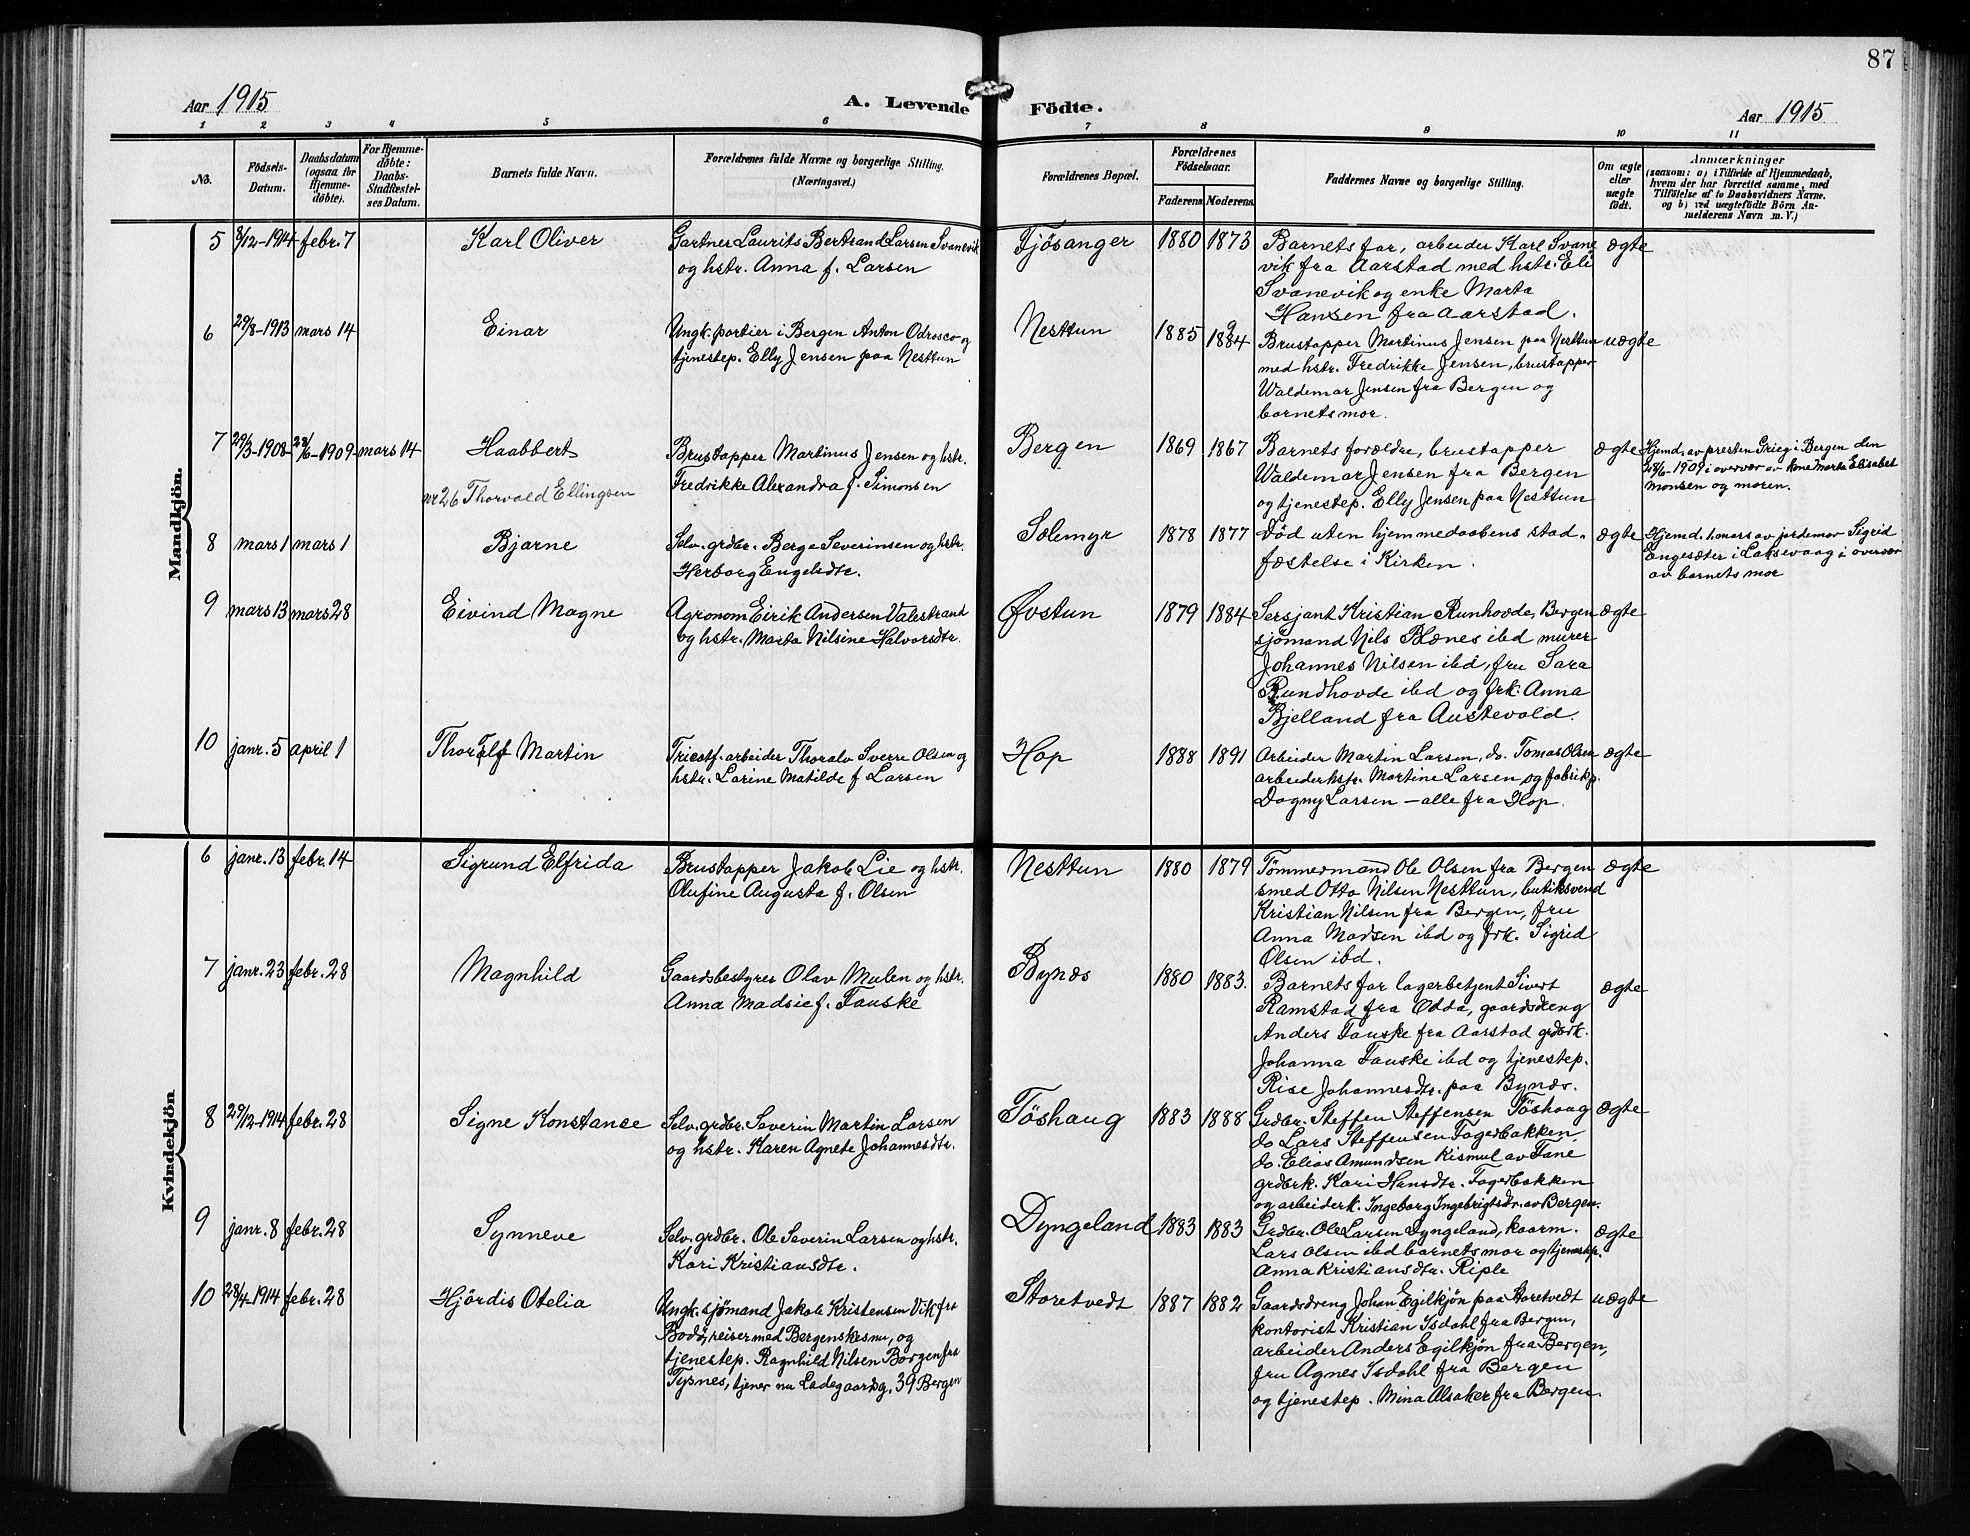 87
Aar 1915
A. Levende Födte.
Aar 1915
1 2 3 4 5 6 7 8 9 10 11
No.
Fødsels-
Datum.
Daabsdatum
(ogsaa for
Hjemme-
døbte).
For Hjemme-
døbte:
Daabs-
Stadfæstel-
ses Datum.
Barnets fulde Navn.
Forældrenes fulde Navne og borgerlige Stilling.
(Næringsvei.)
Forældrenes Bopæl.
Forældrenes
Fødselsaar.
Faderens Moderens
Faddernes Navne og borgerlige Stilling.
Om ægte
eller
uægte
født.
Anmærkninger
(saasom: a) i Tilfælde af Hjemmedaab,
hvem der har forrettet samme, med
Tilføielse af to Daabsvidners Navne.
og b) ved uægtefødte Börn An-
melderens Navn m. V.)
Mandkjön.
5 8/12-1914 febr. 7 Karl Oliver
Gartner Laurits Bertrand Larsen Svanevik
og hstr. Anna f. Larsen
Fjösanger 1880 1873
Barnets far, arbeider Karl Svane
vik fra Aarstad med hstr. Eli
Svanevik og enke Marta
Hansen fra Aarstad.
ægte
6 29/8-1913 mars 14 Einar
Ungk. portier i Bergen Anton Odrosco og
tjenestep. Elly Jensen paa Nesttun
Nesttun 1885 1884
Brustapper Martinus Jensen paa Nesttun
med hstr. Fredrikke Jensen, brustapper
Waldemar Jensen fra Bergen og
barnets mor.
uægte
7 29/3-1908 28/6-1909 mars 14 Haabbert
nr 26 Thorvald Ellingsen
Brustapper Martinus Jensen og hstr.
Fredrikke Alexandra f. Simonsen
Bergen 1869 1867
Barnets forældre, brustapper
Waldemar Jensen fra Bergen
og tjenestep. Elly Jensen paa Nesttun
ægte
Hjemd. av presten Grieg i Bergen den
28/6-1909 i overvær av kone Marta Elisabet
Monsen og moren.
8 mars 1 mars 1 Bjarne
Selv. grdbr. Berge Severinsen og hstr.
Herborg Engelsdtr.
Sælemyr 1878 1877
Död uten hjemmedaabens stad-
fæstelse i Kirken.
ægte
Hjemd. 1 mars av jordemor Sigrid
Engesæter i Laksevaag i overvær
av barnets mor
9 mars 13 mars 28 Eivind Magne
Agronom Eirik Andersen Valestrand
og hstr. Marta Nilsine Halvorsdtr.
Øvstun 1879 1884
Sersjant Kristian Runhovde, Bergen
sjömand Nils Blænes ibd murer
Johannes Nilsen ibd, fru Sara
Rundhovde ibd og frk. Anna
Bjelland fra Austevold.
ægte
10 janr. 5 april 1 Thorolf Martin
Tricotf. arbeider Thoralv Sverre Olsen og
hstr. Larine Matilde f Larsen
Hop 1888 1891
Arbeider Martin Larsen, do. Tomas Olsen
arbeiderhstr. Martine Larsen og fabrikp.
Dagny Larsen – alle fra Hop.
ægte
Kvindekjön
6 janr. 13 febr. 14 Sigrund Elfrida
Brustapper Jakob Lie og hstr.
Olufine Augusta f. Olsen
Nesttun 1880 1879
Tömmermand Ole Olsen fra Bergen
smed Otto Nilsen Nesttun, butiksvend
Kristian Nilsen fra Bergen, fru
Anna Madsen ibd og frk. Sigrid
Olsen ibd.
ægte
7 janr. 23 febr. 28 Magnhild
Gaardsbestyrer Olav Mulen og hstr.
Anna Madsie f. Fauske
Bynæs 1880 1883.
Barnets far lagerbetjent Sivert
Ramstad fra Odda, gaardsdreng
Anders Fauske fra Aarstad grdbrk.
Johanna Fauske ibd og tjenestep.
Rise Johannesdtr. paa Bynæs.
ægte
8 29/12-1914 febr. 28 Signe Konstanse
Selv. grdbr. Severin Martin Larsen
og hstr. Karen Agnete Johannesdtr.
Töshaug 1883 1888
Grdbr. Steffen Steffensen Töshaug
do Lars Steffensen Fagerbakken
do. Elias Amundsen Kismul av Fane
grdbrk. Kari Hansdtr. Fagerbakken
og arbeiderk. Ingeborg Ingebrigtsdr. av Bergen.
ægte
9 janr. 8 febr. 28 Synneve
Selv. grdbr. Ole Severin Larsen og hstr.
Kari Kristiansdtr.
Dyngeland 1883 1883
Grdbr. Ole Larsen Dyngeland, kaarm.
Lars Olsen ibd barnets mor og tjenestep.
Anna Kristiansdtr. Riple
ægte
10 28/4-1914 febr. 28 Hjördis Otelia
Ungk. sjömand Jakob Kristensen Vik fra
Bodö, reiser med Bergenskesnu, og
tjenestep. Ragnhild Nilsen Borgen fra
Tysnes, tjener nu Ladegaardsg. 39 Bergen
Storetvedt 1887 1882
Gaardsdreng Johan Egilkjön paa Storetvedt
kontorist Kristian Isdahl fra Bergen,
arbeider Anders Egilkjön fra Bergen,
fru Agnes Isdahl fra Bergen
og tjenestep. Mina Alsaker fra Bergen.
uægte